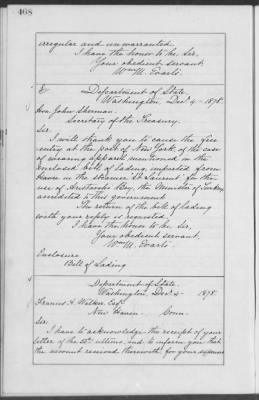 468
irregular and unwarranted.
I have the honor to be, Sir,
Your obedient servant,
Wm M. Evarts.
Department of State,
Washington, Dec. 4 - 1878.
Hon. John Sherman
Secretary of the Treasury.
Sir,
I will thank you to cause the free
entry at the port of New York, of the case
of wearing apparel mentioned in the
enclosed bill of lading, imported from
Havre in the steamer St Laurent for the
use of Aristarchi Bey, the Minister of Turkey,
accredited to this government.
The return of the bill of lading
with your reply is requested.
I have the honor to be, Sir,
Your obedient servant,
Wm M. Evarts.
Enclosure
Bill of Lading
Department of State,
Washington, Dec. 4 - 1878.
Francis A. Walker, Esqr.
New Haven - Conn.
Sir,
I have to acknowledge the receipt of your
letter of the ultimo, and to inform you that
the account received therewith for your expenses